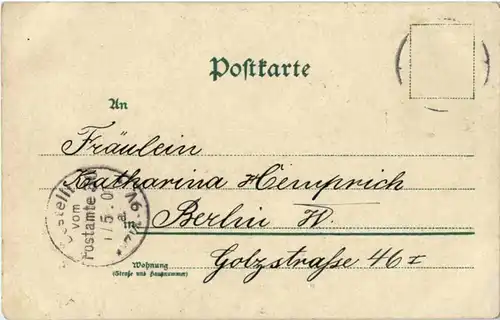 Postkarte
An
Fräulein
Katharina Hemprich
in Berlin W.
Golzstraße 46 I
Wohnung
(Straße und Hausnummer)
Bestellt
vom
Postamte